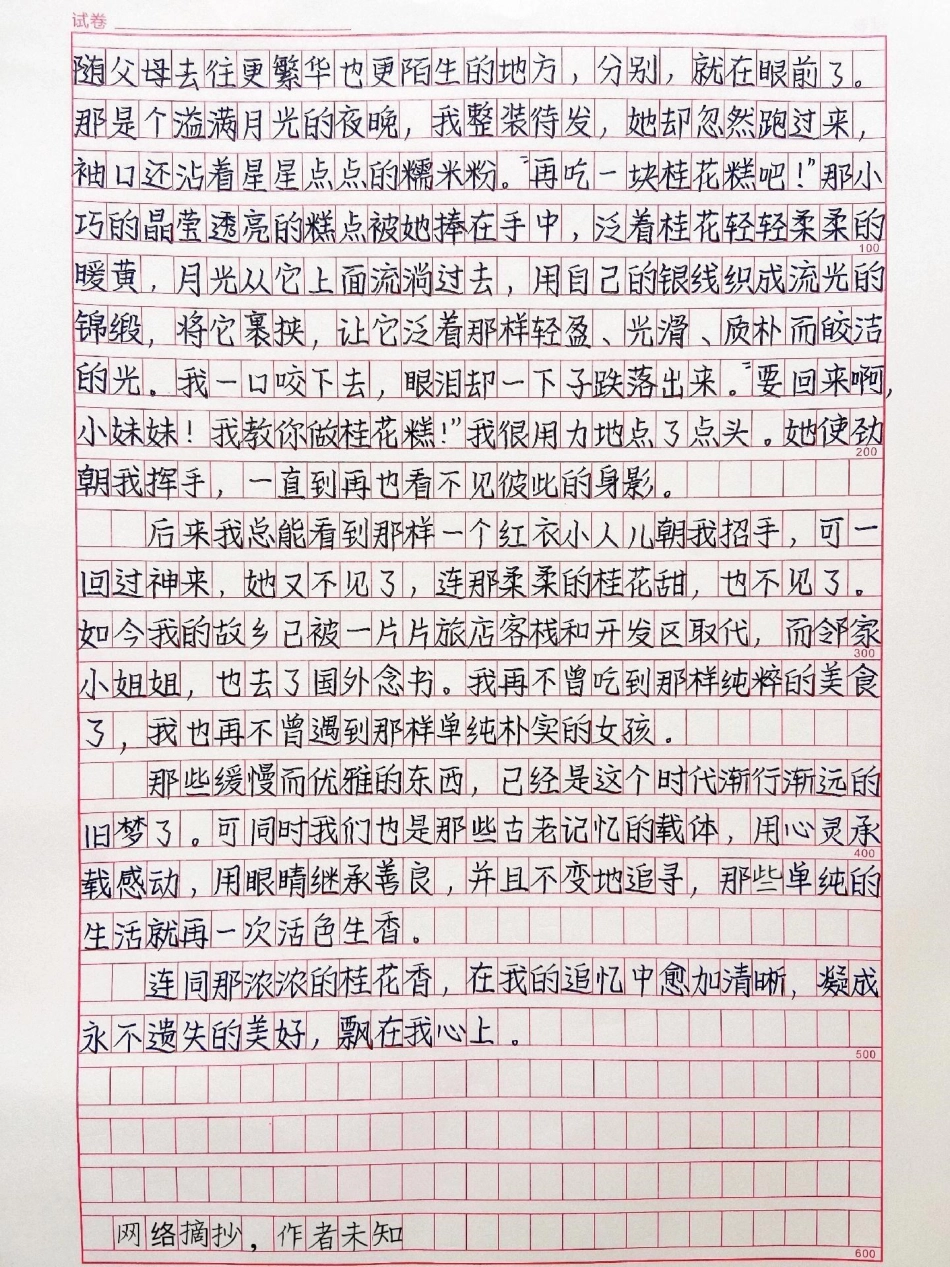 试卷
随父母去往更繁华也更陌生的地方，分别，就在眼前了。
那是个溢满月光的夜晚，我整装待发，她却忽然跑过来，
袖口还沾着星星点点的糯米粉。“再吃一块桂花糕吧！”那小
巧的晶莹透亮的糕点被她捧在手中，泛着桂花轻轻柔柔的
100
暖黄，月光从它上面流淌过去，用自己的银线织成流光的
锦缎，将它裹挟，让它泛着那样轻盈、光滑、质朴而皎洁
的光。我一口咬下去，眼泪却一下子跌落出来。“要回来啊，
小妹妹！我教你做桂花糕！”我很用力地点了点头。她使劲
200
朝我挥手，一直到再也看不见彼此的身影。
后来我总能看到那样一个红衣小人儿朝我招手，可一
回过神来，她又不见了，连那柔柔的桂花甜，也不见了。
如今我的故乡已被一片片旅店客栈和开发区取代，而邻家
300
小姐姐，也去了国外念书。我再不曾吃到那样纯粹的美食
了，我也再不曾遇到那样单纯朴实的女孩。
那些缓慢而优雅的东西，已经是这个时代渐行渐远的
旧梦了。可同时我们也是那些古老记忆的载体，用心灵承
400
载感动，用眼睛继承善良，并且不变地追寻，那些单纯的
生活就再一次活色生香。
连同那浓浓的桂花香，在我的追忆中愈加清晰，凝成
永不遗失的美好，飘在我心上。
500
网络摘抄，作者未知
600